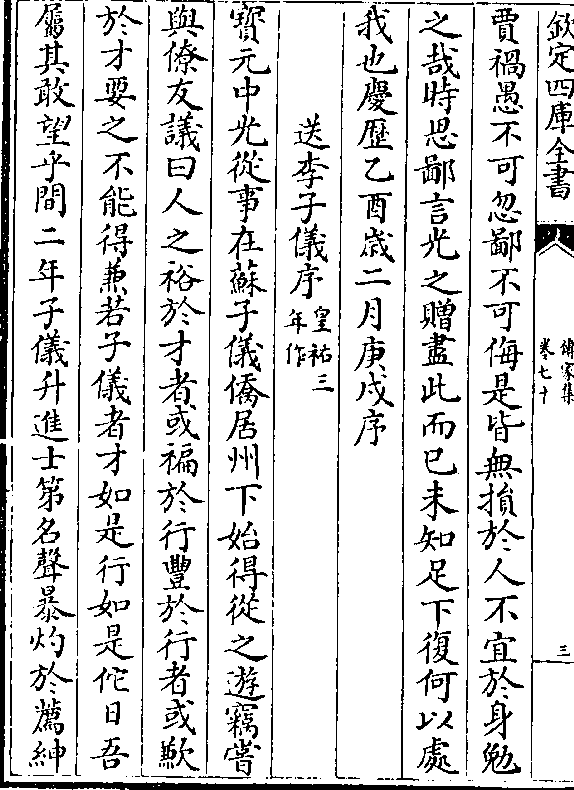 欽定四庫全書
傳家集
卷七十
三
賈禍愚不可忽鄙不可侮是皆無損於人不宜於身勉
之哉時思鄙言光之贈盡此而已未知足下復何以處
我也慶歴乙酉歲二月庚戌序
送李子儀序皇祐三年作
寳元中光從事在蘇子儀僑居州下始得從之遊竊嘗
與僚友議曰人之裕於才者或褊於行豐於行者或歉
於才要之不能得兼若子儀者才如是行如是佗日吾
屬其敢望乎間二年子儀升進士第名聲暴灼於薦紳